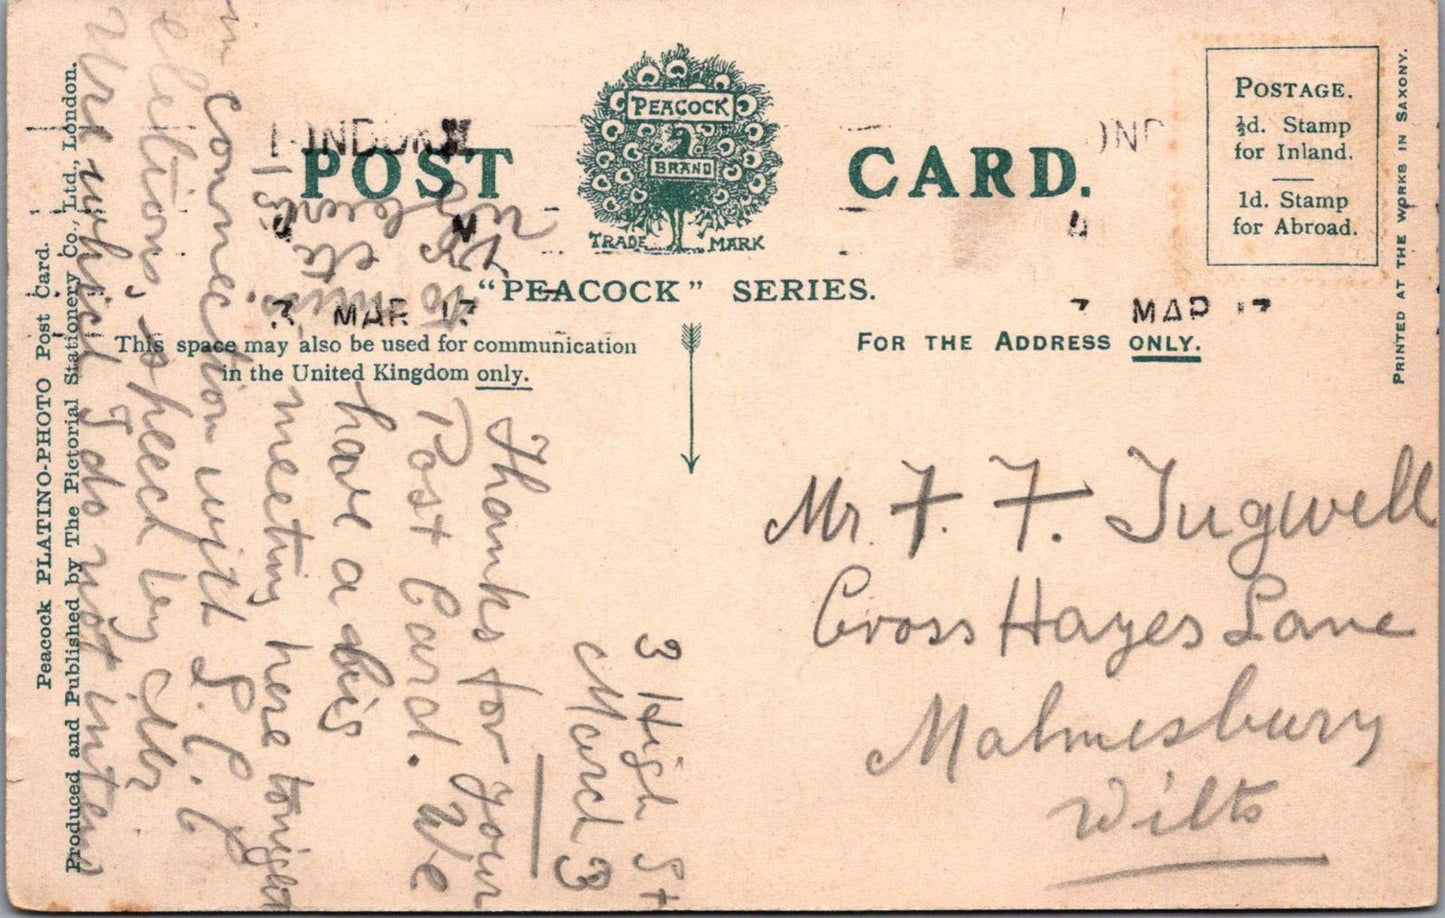 POST CARD.
PEACOCK
BRAND
TRADE MARK
"PEACOCK" SERIES.
POSTAGE.
½d. Stamp
for Inland.
1d. Stamp
for Abroad.
PRINTED AT THE WORKS IN SAXONY.
This space may also be used for communication
in the United Kingdom only.
FOR THE ADDRESS ONLY.
Peacock PLATINO-PHOTO Post Card.
Produced and Published by The Pictorial Stationery Co., Ltd., London.
3 MAR
MAR
Mr F. F. Tugwell
Cross Hayes Lane
Malmesbury
Wilts
3 High St
March 3
Thanks for your
Post Card. We
have a big
meeting here tonight
in connection with L.C.C
elections, speech by
which I do not intend